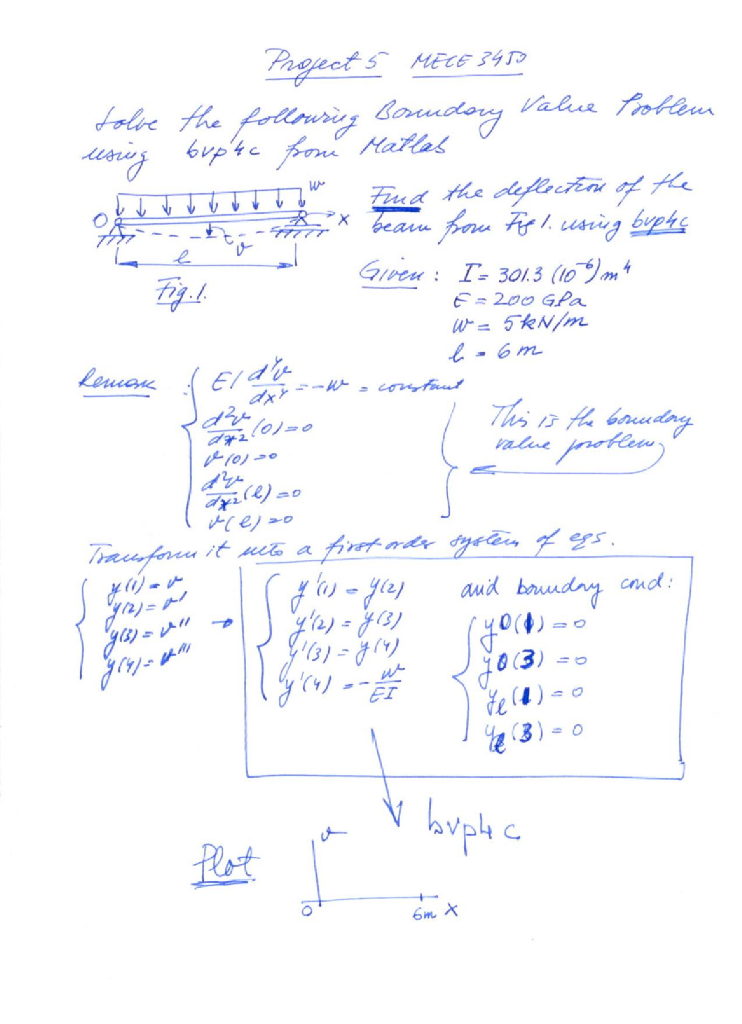 Project 5 MECE 3450
Solve the following Boundary Value Problem
using bvp4c from Matlab
w
Find the deflection of the
O x
v
beam from Fig 1. using bvp4c
l
Fig. 1.
Given : I = 301.3 (10⁻⁶) m⁴
E = 200 GPa
w = 5 kN/m
l = 6 m
Remark : { EI d⁴v/dx⁴ = -w = constant
d²v/dx² (0) = 0
v(0) = 0
d²v/dx² (l) = 0
v(l) = 0
This is the boundary
value problem
Transform it into a first order system of eqs.
y(1) = v
y(2) = v'
y(3) = v''
y(4) = v'''
y'(1) = y(2)
y'(2) = y(3)
y'(3) = y(4)
y'(4) = -w/EI
and boundary cond :
y0(1) = 0
y0(3) = 0
yl(1) = 0
yl(3) = 0
bvp4c
Plot
v
0 6m x